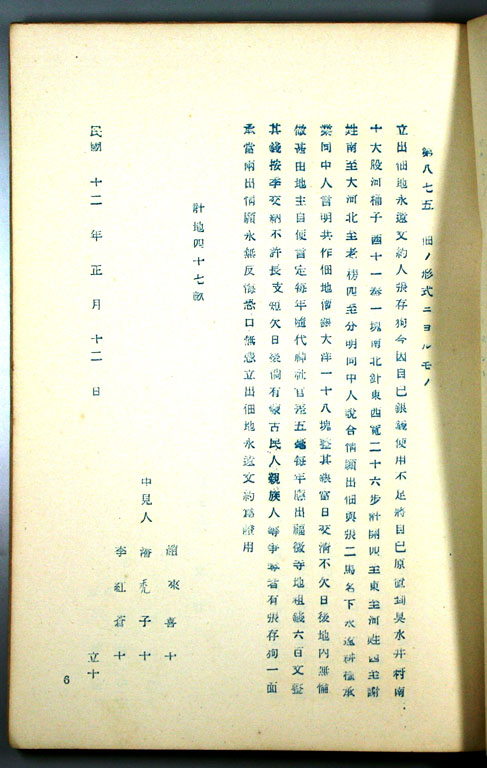 第八七五 佃ノ形式ニヨルモノ
立出佃地永遠文約人張存狗今因自已銀錢使用不足將自已原置到吳水井村南
十大段河楠子酉十一 一塊南北計東西寬二十六步計開四至東至河姓西至謝
姓南至大河北至老楞四至分明同中人說合情願出佃與張二馬名下永遠耕種承
業同中人言明共作佃地價銀大洋一十八塊整其銀當日交清不欠日後地內無論
做甚由地主自便言定每年隨代神社官差五 每年應出福徵寺地租錢六百文整
其錢按季交納不許長支短欠日後倘有蒙古民人親族人等爭奪者有張存狗一面
承當兩出情願永無反悔恐口無憑立出佃地永遠文約爲證用
計地四十七畝
民國 十二 年 正 月 十二 日
中見人
趙來喜十
潘禿子十
李紅 十
立十
6